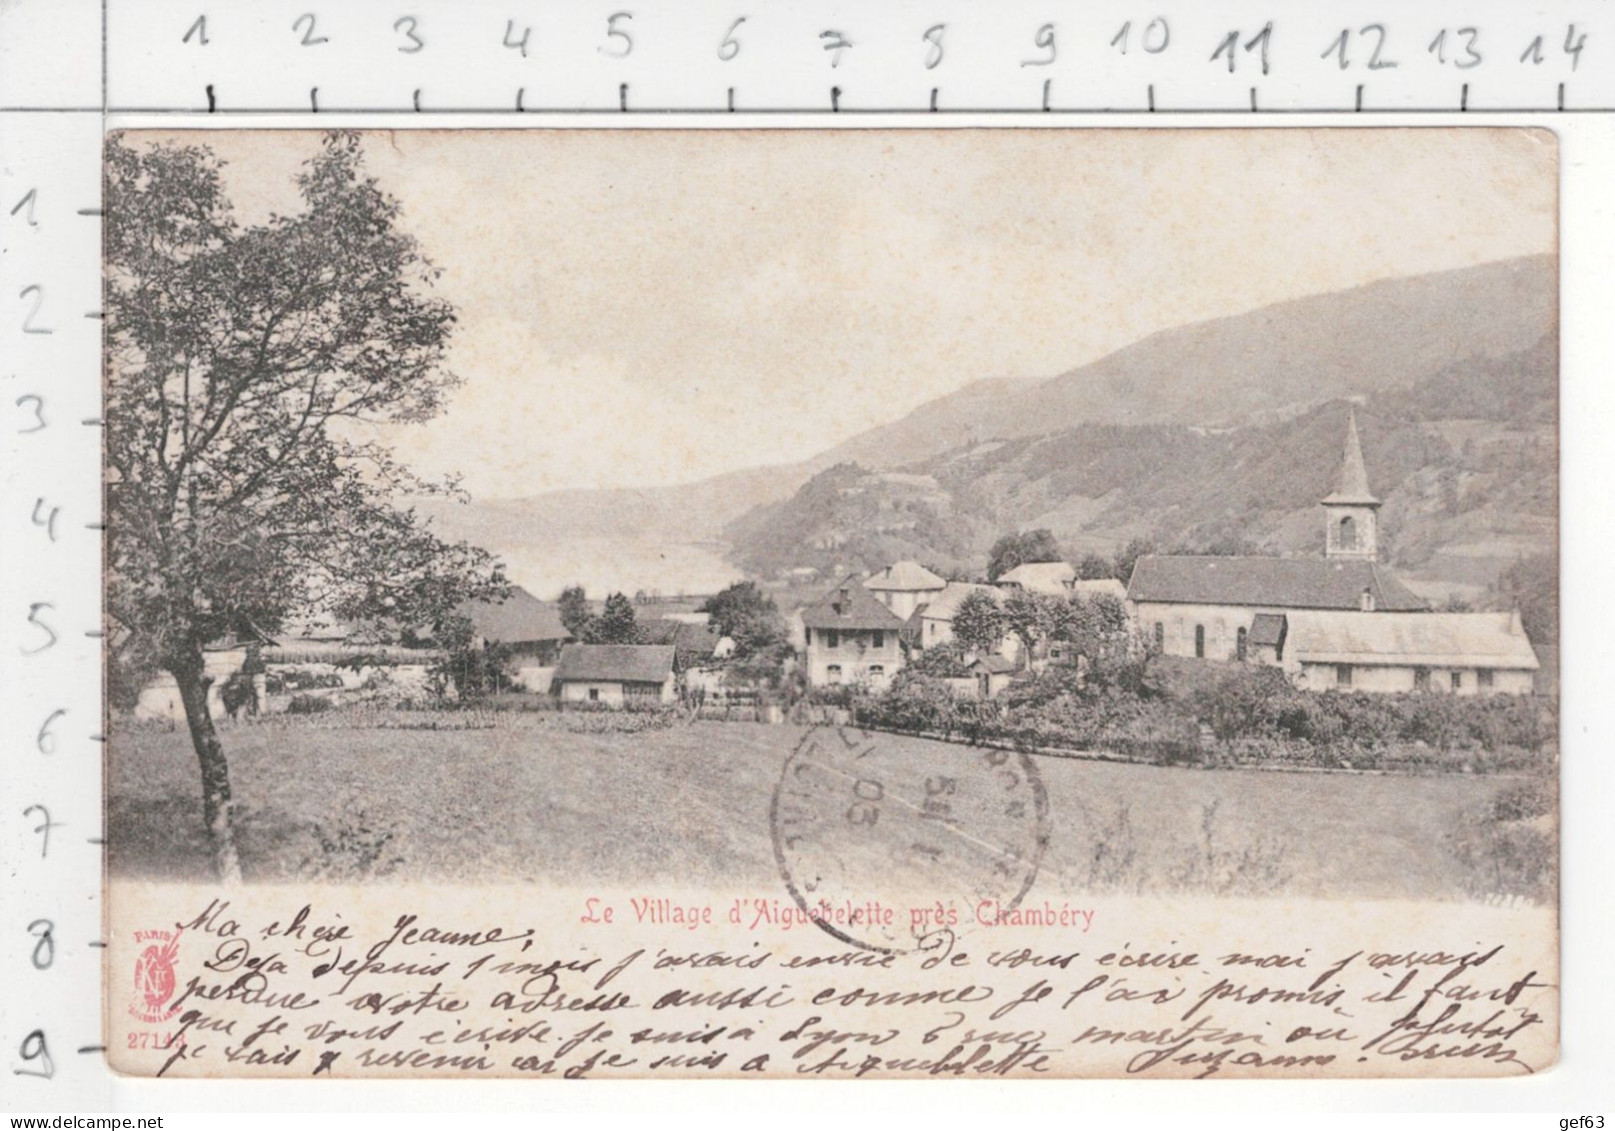 1 2 3 4 5 6 7 8 9 10 11 12 13 14
1
2
3
4
5
6
7
8
9
Le Village d'Aiguebelette près Chambéry
PARIS
27148
03
Ma chère Jeanne,
Deja depuis 1 mois j'avais envie de vous écrire mai j'avais
perdue votre adresse aussi comme je l'ai promis il faut
que je vous écrive je suis à Lyon 6 rue martin où plutôt
je vais y revenir car je suis a Aiguebelette Suzanne
gef63